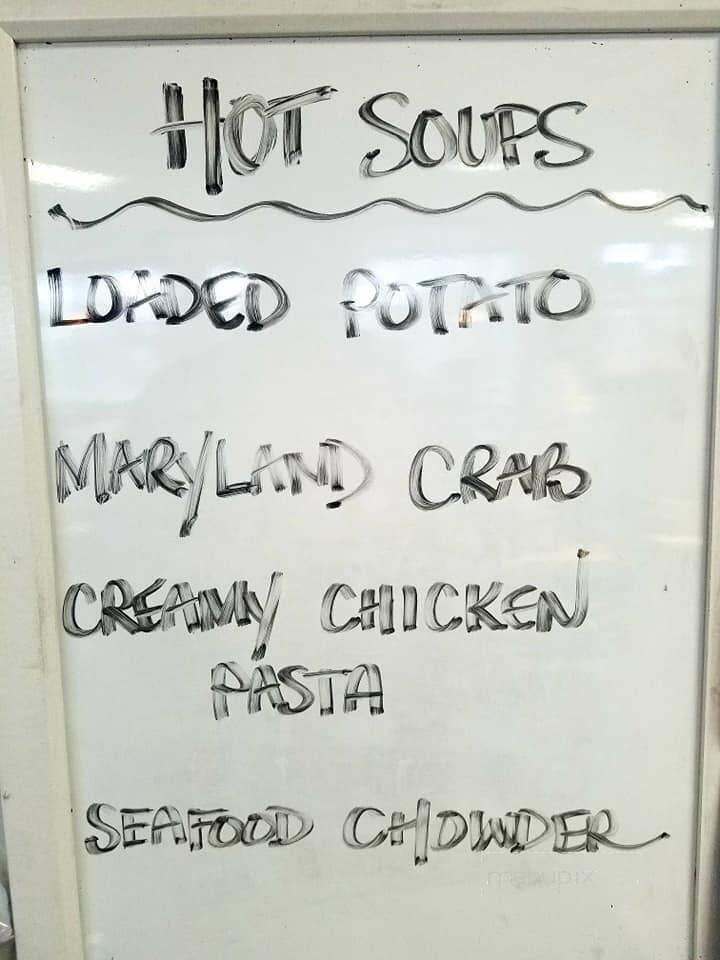 HOT SOUPS
LOADED POTATO
MARYLAND CRAB
CREAMY CHICKEN
PASTA
SEAFOOD CHOWDER